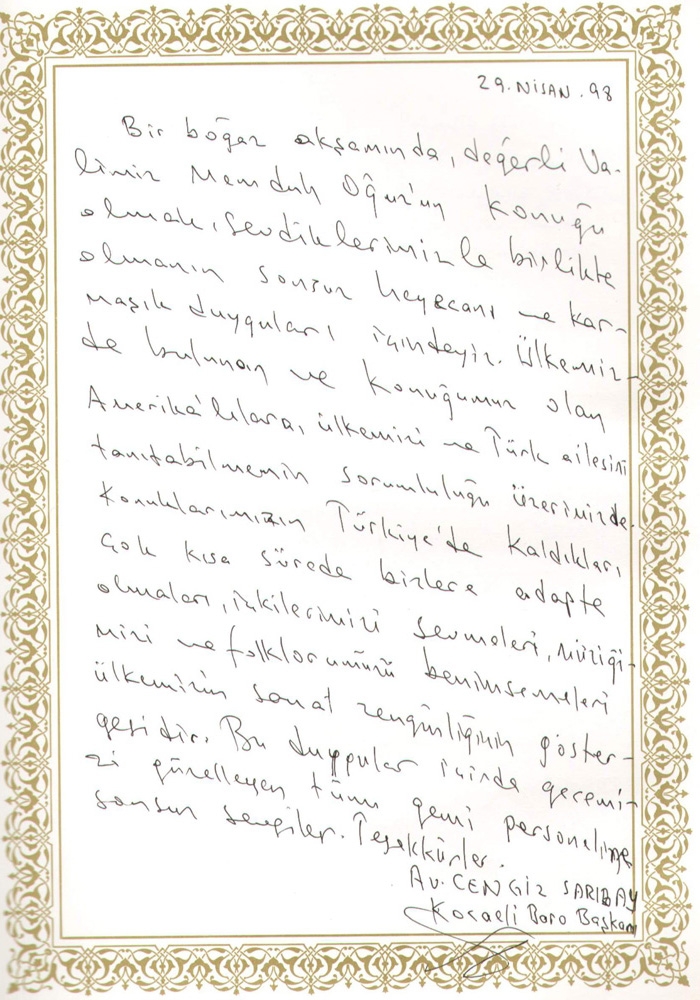 29.NİSAN.98
Bir boğaz akşamında, değerli Va-
limiz Memduh Oğuz'un konuğu
olmak, sevdiklerimizle birlikte
olmanın sonsuz heyecanı ve kar-
maşık duyguları içindeyiz. Ülkemiz-
de bulunan ve konuğumuz olan
Amerika'lılara, ülkemizi ve Türk ailesini
tanıtabilmenin sorumluluğu üzerimizde.
Konuklarımızın Türkiye'de kaldıkları
çok kısa sürede bizlere adapte
olmaları, içkilerimizi sevmeleri, müziği-
mizi ve folklorumuzu benimsemeleri
ülkemizin sanat zenginliğinin göster-
gesidir. Bu duygular içinde gecemi-
zi güzelleyen tüm gemi personeline
sonsuz sevgiler. Teşekkürler.
Av. CENGİZ SARIBAY
Kocaeli Baro Başkanı